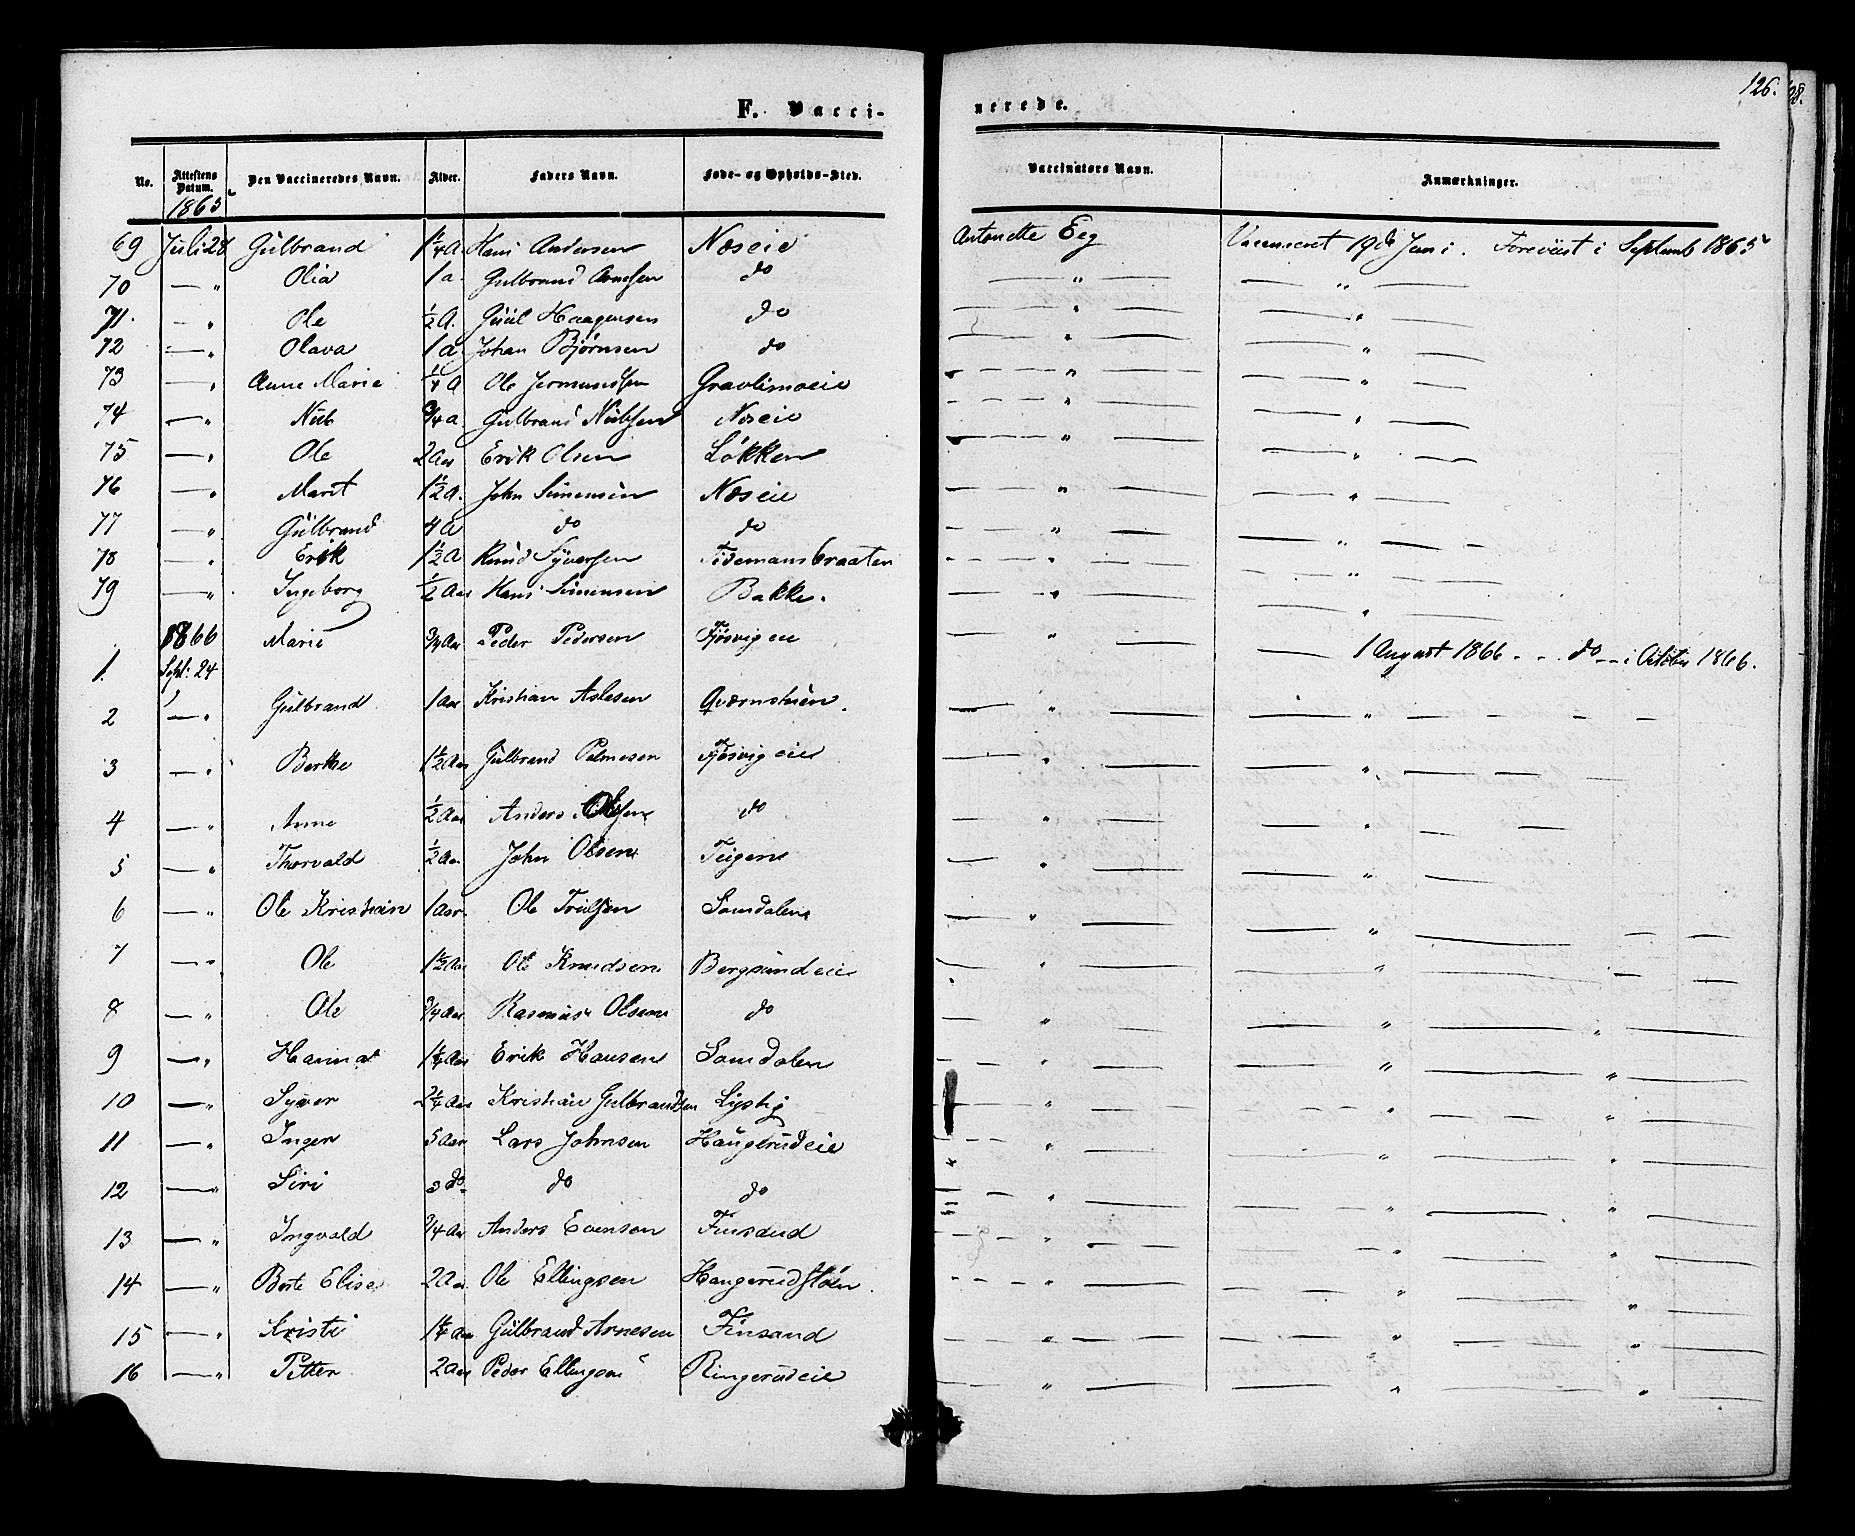 126.
F. Vacci-nerede.
No. Attestens Datum. Den Vaccineredes Navn. Alder. Faders Navn. Føde- og Opholds-Sted. Vaccinators Navn. Anmærkninger.
1865
69 Juli 28 Gulbrand 1 1/4 A Hans Andersen Næseie Antonette Eeg Vaccineret 19de Juni. Foreviist i Septemb 1865
70 — " Olia 1 a. Gulbrand Arnesen do — " — — " —
71. — " Ole 1/2 A. Guul Haagensen do — " — — " —
72 — " Olava 1 a Johan Bjørnsen do — " — — " —
73 — " Anne Marie 1/4 A Ole Jermundsen Gravlimoeie — " — — " —
74 — " Niels 3/4 a Gulbrand Nielsen Næseie — " — — " —
75 — " Ole 2 Aar Erik Olsen Løkken — " — — " —
76 — " Marit 1 1/2 A. John Simensen Næseie — " — — " —
77 — " Gulbrand 4 A do do — " — — " —
78 — " Erik 1 1/2 A Knud Syversen Tidemansbraaten — " — — " —
79 — " Ingeborg 1/2 Aar Hans Simensen Bakke. — " — — " —
1866
1. Sept: 24 Marie 3/4 Aar Peder Pedersen Fjøsvigeie — " — — 1 August 1866 - - do - - i October 1866.
2 — " Gulbrand 1 Aar Kristian Aslesen Qværnstuen. — " — — " — — —
3 — " Berthe 1 1/2 Aar Gulbrand Palmesen Fjøsvigeie — " — — " — — —
4 — " Anne 1/2 Aar Anders Olsen do — " — — " — —
5 — " Thorvald 1/2 Aar John Olsen Teigen — " — — " —
6 — " Ole Kristian 1 Aar. Ole Trulsen Somdalen — " — — " — — —
7 — " Ole 1 1/2 Aar Ole Knudsen Bergsundeie — " — — " — — —
8 — " Ole 3/4 Aar Rasmus Olsen do — " — — " — " —
9 — " Hanna 1 1/4 Aar Erik Hansen Somdalen — " — — " — " —
10 — " Syver 2 1/4 Aar Kristian Gulbrandsen Lystig — " — — " — " —
11 — " Inger 5 Aar Lars Johnsen Haugerudeie — " — — " — " —
12 — " Siri 3 do do do — " — — " — " —
13 — " Ingvald 3/4 Aar Anders Evensen Finsand — " — — " — " —
14 — " Berte Elise 2 Aar Ole Ellingsen Haugerudstøen. — " — — " — " —
15 — " Kristi 1 1/4 Aar Gulbrand Arnesen Finsand — " — — " — " —
16 — " Petter 2 Aar Peder Ellingsen Ringerudeie — " — — " — " —